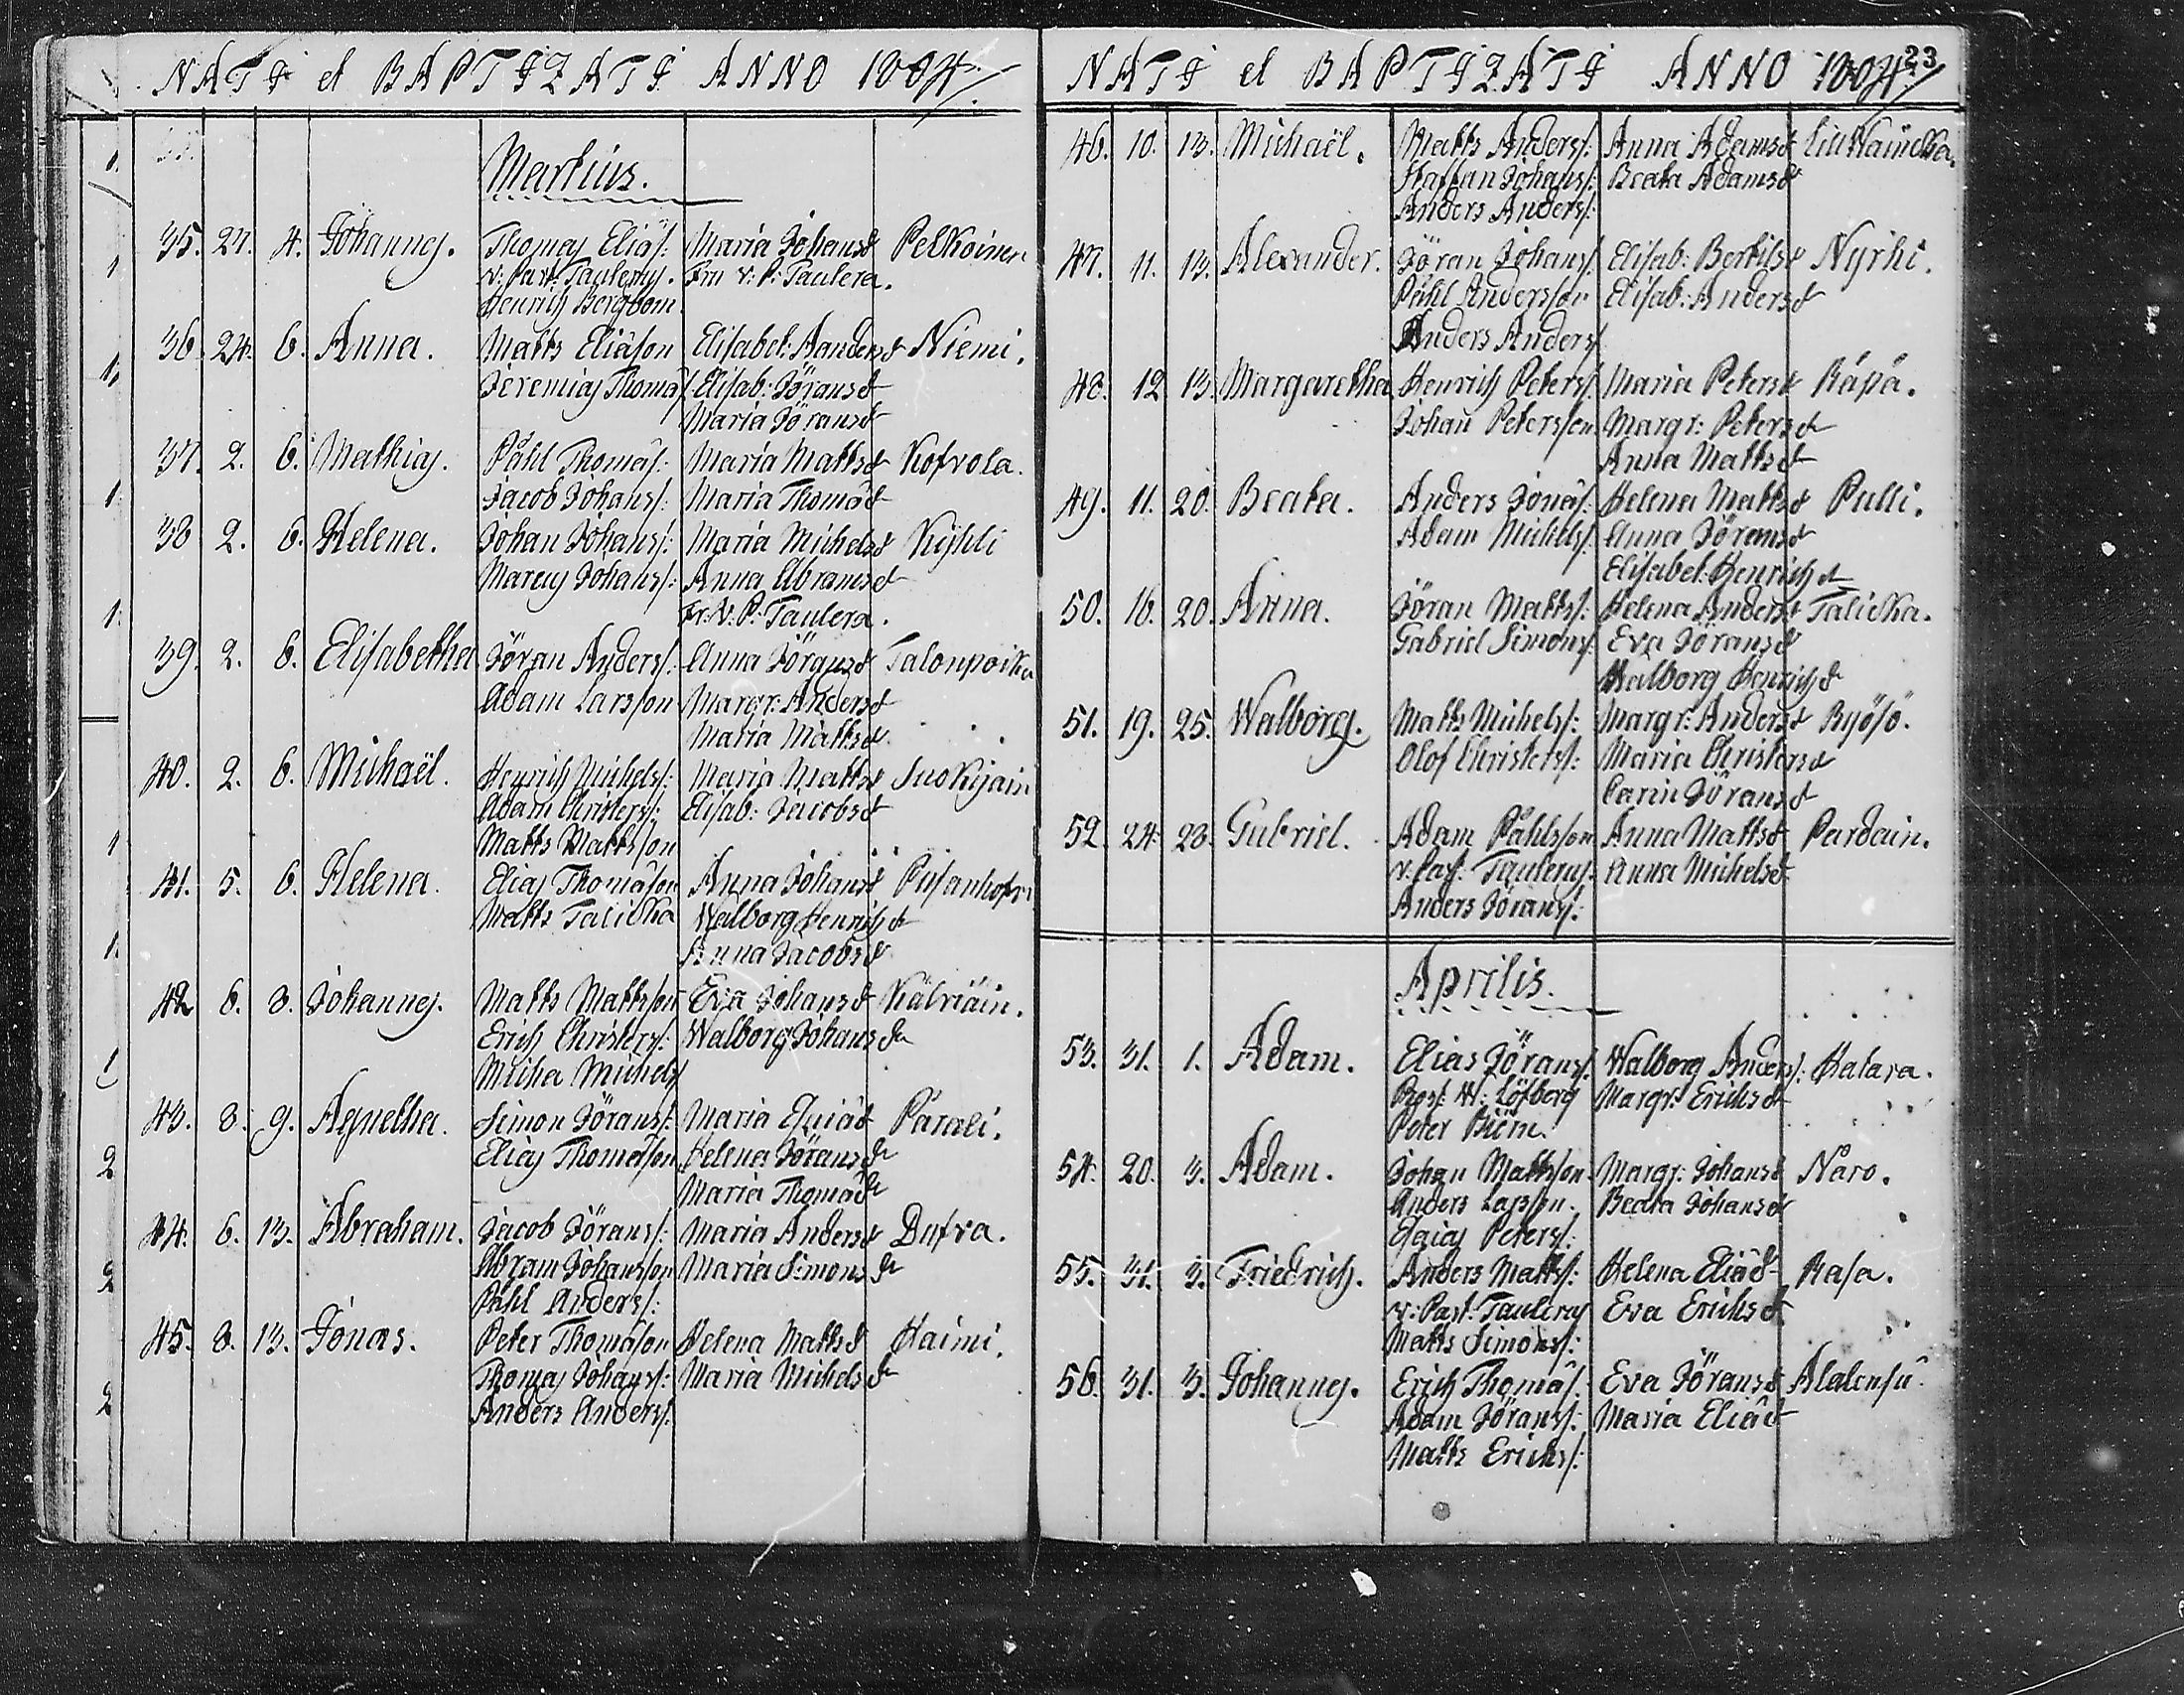 NATI et BAPTIZATI ANNO 1804
Martius.
35. 27. 4. Johannes. Thomas Eliäs: Maria Johansd Pelkoinen
v: Past: Taulerus. Fru v: P: Taulera.
Henrich Bergbom
36. 24. 6. Anna. Matts Eliäson Elisabet: Aandersd Niemi.
Jeremias Thomäs Elisab: Jöransd
Maria Jöransd
37. 2. 6. Mathias. Påhl Thomäs: Maria Mattsd Kofvola.
Jacob Johans: Maria Thomäd
38 2. 6. Helena. Johan Johans: Maria Michelsd Kyhli
Marcus Johans: Anna Abramsd
Fr: V: P: Taulera.
39. 2. 6. Elisabetha Jöran Anders: Anna Jöransd Talonpoika
Adam Larsson Margr: Andersd
Maria Mattsd
40. 2. 6. Michaël. Henrich Michels: Maria Mattsd Suokijain
Adam Christers: Elisab: Jacobsd
Matts Mattsson
41. 5. 6. Helena. Elias Thomäson Anna Johansd
Matts Talicka Walborg Henrichsd
Anna Jacobsd
42 6. 8. Johannes. Matts Mattsson Eva Johansd Kälviäin.
Erich Christers: Walborg Johansd
Micha Michels
43. 8. 9. Agnetha. Simon Jörans: Maria Esaiäd Parali.
Elias Thomäson Helena Jöransd
Maria Thomäd
44. 6. 13. Abraham. Jacob Jörans: Maria Andersd Dufva.
Abram Johansson Maria Simonsd
Påhl Anders:
45. 8. 13. Jonas. Peter Thomäson Helena Mattsd Haimi.
Thomas Johans: Maria Michelsd
Anders Anders:
NATI et BAPTIZATI ANNO 1804 23
46. 10. 13. Michaël. Matts Anders: Anna Adamsd Liuwaincka.
Staffan Johans: Beata Adamsd
Anders Anders:
47. 11. 13. Alexander. Jöran Johans: Elisab: Bertilsd Nyrhi.
Påhl Andersson Elisab: Andersd
Anders Anders
48. 12 13. Margaretha Henrich Peters: Maria Petersd Räpä.
Johan Petersson Margr: Petersd
Anna Mattsd
49. 11. 20. Beata. Anders Jonäs: Helena Mattsd Pulli.
Adam Michels: Anna Jöransd
Elisabet: Henrichsd
50. 16. 20. Anna. Jöran Matts: Helena Andersd Talicka.
Gabriel Simons: Eva Jöransd
Walborg Henrichsd
51. 19. 25. Walborg. Matts Michels: Margr: Andersd Ryösö.
Olof Christers: Maria Christersd
Carin Jöransd
52. 24. 28. Gabriel. Adam Påhlsson Anna Mattsd Pardain.
v: Past: Taulerus. Anna Michelsd
Anders Jörans:
Aprilis.
53. 31. 1. Adam. Elias Jörans: Walborg Anders: Hatara.
W: Löfberg Margr: Erichsd
Peter Biörn.
54. 20. 3. Adam. Johan Mattsson Margr: Johansd Naro.
Anders Larsson. Beata Johansd
Esaias Peters:
55. 31. 3. Friedrich. Anders Matts: Helena Eliäd Rasa.
v: Past: Taulerus Eva Erichsd
Matts Simons:
56. 31. 3. Johannes. Erich Thomäs: Eva Jöransd Alalensu
Adam Jörans: Maria Eliäd
Matts Erichs: